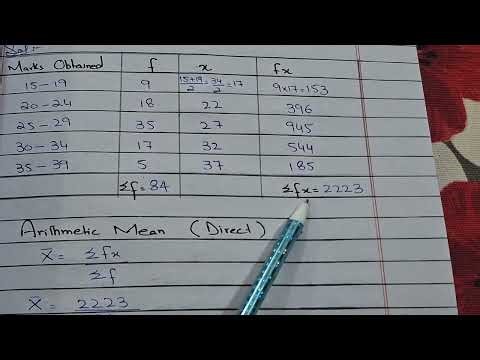 Sol:-
Marks Obtained f x fx
15-19 9 15+19/2=34/2=17 9x17=153
20-24 18 22 396
25-29 35 27 945
30-34 17 32 544
35-39 5 37 185
Σf=84 Σfx=2223
Arithmetic Mean (Direct)
X̄ = Σfx
Σf
X̄ = 2223